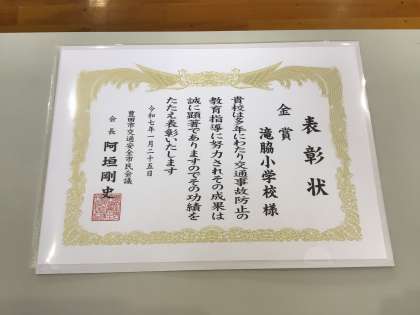 表彰状
金賞
滝脇小学校 様
貴校は多年にわたり交通事故防止の
教育指導に努力されその成果は
誠に顕著でありますのでその功績を
たたえ表彰いたします
令和七年一月二十五日
豊田市交通安全市民会議
会長 阿垣剛史